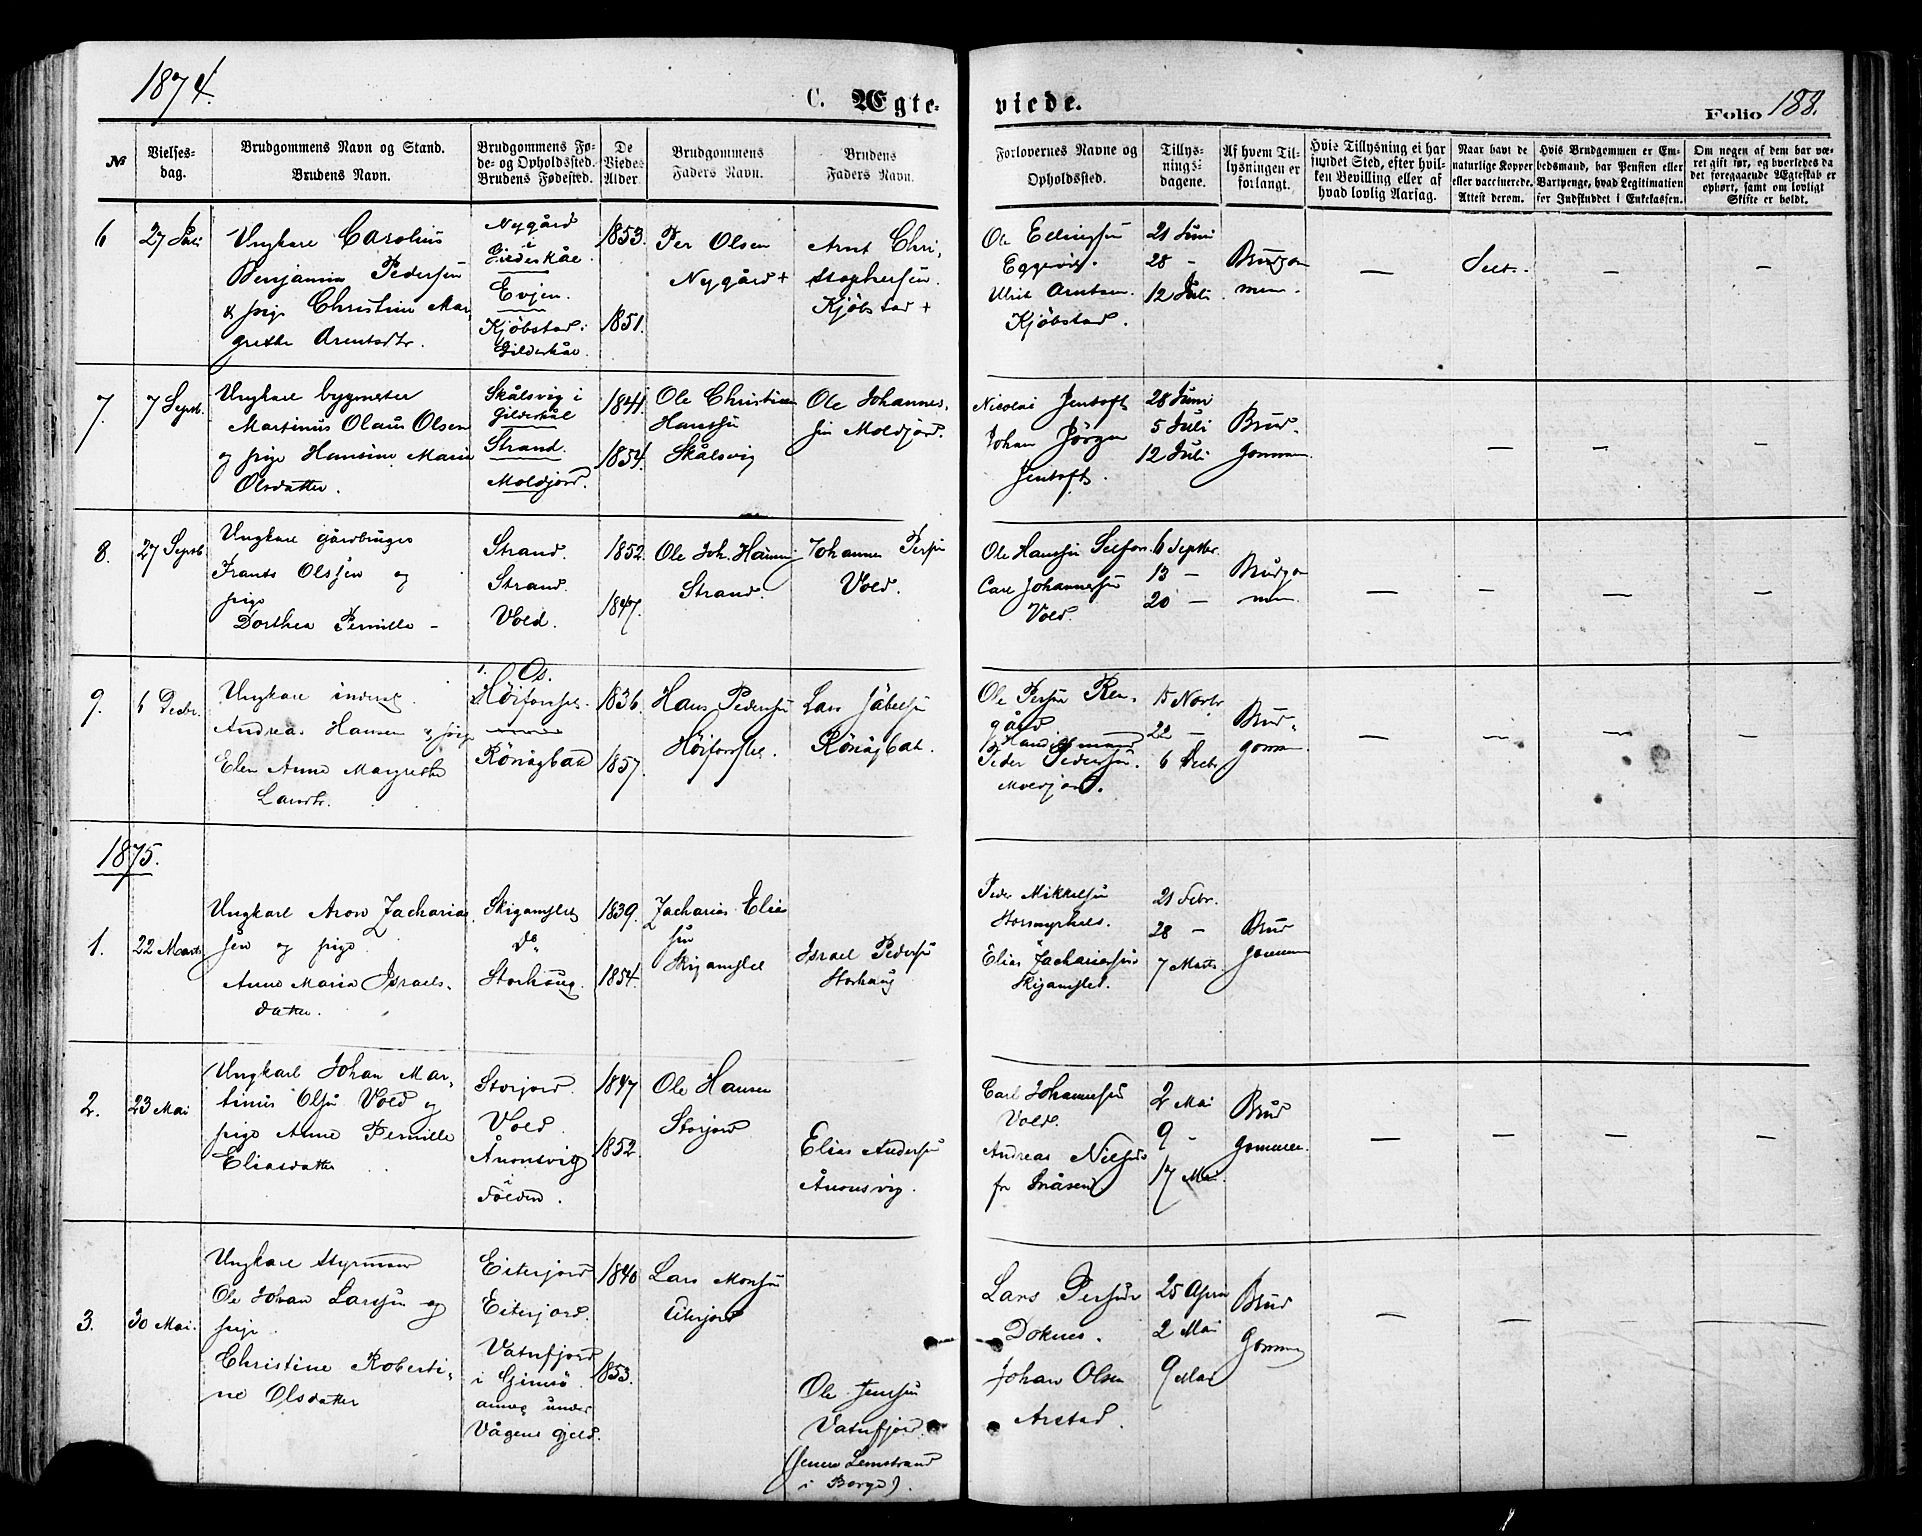 1874.
C. Ægte-
viede.
Folio 188.
№
Vielses-
dag.
Brudgommens Navn og Stand.
Brudens Navn.
Brudgommens Fø-
de- og Opholdssted.
Brudens Fødested.
De
Viedes
Alder.
Brudgommens
Faders Navn.
Brudens
Faders Navn.
Forlovernes Navne og
Opholdssted.
Tillys-
nings-
dagene.
Af hvem Til-
lysningen er
forlangt.
Hvis Tillysning ei har
fundet Sted, efter hvil-
ken Bevilling eller af
hvad lovlig Aarsag.
Naar havt de
naturlige Kopper
eller vaccinerede.
Attest derom.
Hvis Brudgommen er Em-
bedsmand, har Pension eller
Vartpenge, hvad Legitimation
for Indskuddet i Enkekassen.
Om nogen af dem har væ-
ret gift før, og hvorledes da
det foregaaende Ægteskab er
ophørt, samt om lovligt
Skifte er holdt.
6
27 Juli
Ungkarl Carolius
Benjamin Pedersen
& pige Christine Mar,
grethe Arentsdtr.
Nygård
i
Gildeskål.
Evjen.
Kjöbstad i
Gildeskål.
1853.
1851.
Per Olsen
Nygård +
Arnt Chri,
stophersen.
Kjöbstad +
Ole Edingsen
Eggevig.
Ulrik Arntsen.
Kjöbstad.
21 Juni
28 -
12 Juli.
Brudgom
men.
—
—
—
7.
7 Septb.
Ungkarl bygmester
Martinus Olaus Olsen
og pige Hansine Marie
Olsdatter.
Skålsvig i
Gildeskål
Strand.
Moldjord.
1841.
1854.
Ole Christian
Hanssen
Skålsvig
Ole Johannes,
sen Moldjord.
Nicolai Jentoft
Johan Jörgen
Jentoft.
28 Juni
5 Juli
12 Juli
Brud-
gommen
—
—
—
—
8.
27 Septb
Ungkarl gårdbruger
Frants Olssen og
pige
Dorthea Pernille -
Strand.
Strand.
Vold.
1852.
1847.
Ole Joh. Hanssen
Strand.
Johannes Persen
Vold.
Ole Hanssen Selfors.
Carl Johannessen
Vold.
6 Septbr.
13 -
20 -
Brudgom
men
—
—
—
—
9.
6 Decbr.
Ungkarl inderst
Andreas Hansen & pige
Elen Anne Margrethe
Larsdtr.
Os.
Höiforslet.
Rönågbak
1836.
1857.
Hans Pedersen
Höiforslet.
Lars
Rönågbak.
Ole Persen Ren,
gård
Handelsmand
Peder Pedersen.
Moldjord.
15 Novbr
22 -
6 Decbr
Brud-
gommen
—
—
—
—
1875.
1.
22 Marts
Ungkarl Aron Zacharias
sen og pige
Anne Maria Israels-
datter.
Skigamslet
do
Storhaug.
1839.
1854.
Zacharias Elias
sen
Skigamslet
Israel Pedersen
Storhaug
Peder Mikkelsen
Elias Zachariassen
Skigamslet.
21 Febr.
28 -
7 Marts
Brud
gommen
2.
23 Mai
Ungkarl Johan Mar-
tinus Olsen Vold og
pige Anne Pernille
Eliasdatter
Storjord
Vold.
Ånonsvig
i
Folden.
1847
1852.
Ole Hansen
Storjord
Elias Andersen
Ånonsvig.
Carl Johannessen
Vold.
Andreas Nilsen
fr Snåsen.
2 Mai
9 -
17 Mai.
Brud
gommen.
—
—
—
—
3.
30 Mai.
Ungkarl styrmand
Ole Johan Larssen og
pige.
Christine Roberti-
ne Olsdatter
Eiterjord
Eiterjord.
Vatnfjord
i Gimsö
annex under
Vågens gjeld.
1840
1853.
Lars Monsen
Eiterjord
Ole Jenssen
Vatnfjord.
(senere Lemstrand
i Borge).
Lars Persen
Doknes.
Johan Olsen
Arstad.
25 April
2 Mai
9 Mai
Brud
gommen
—
—
—
—